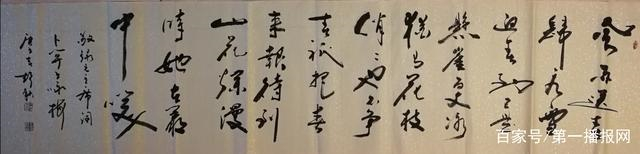 風雨送春
歸飛雪
迎春到已是
懸崖百丈冰
猶有花枝
俏〻也不争
春祇把春
来報待到
山花爛漫
時她在叢
中笑
敬録毛主席詞
卜算子咏梅
百家号/第一播报网